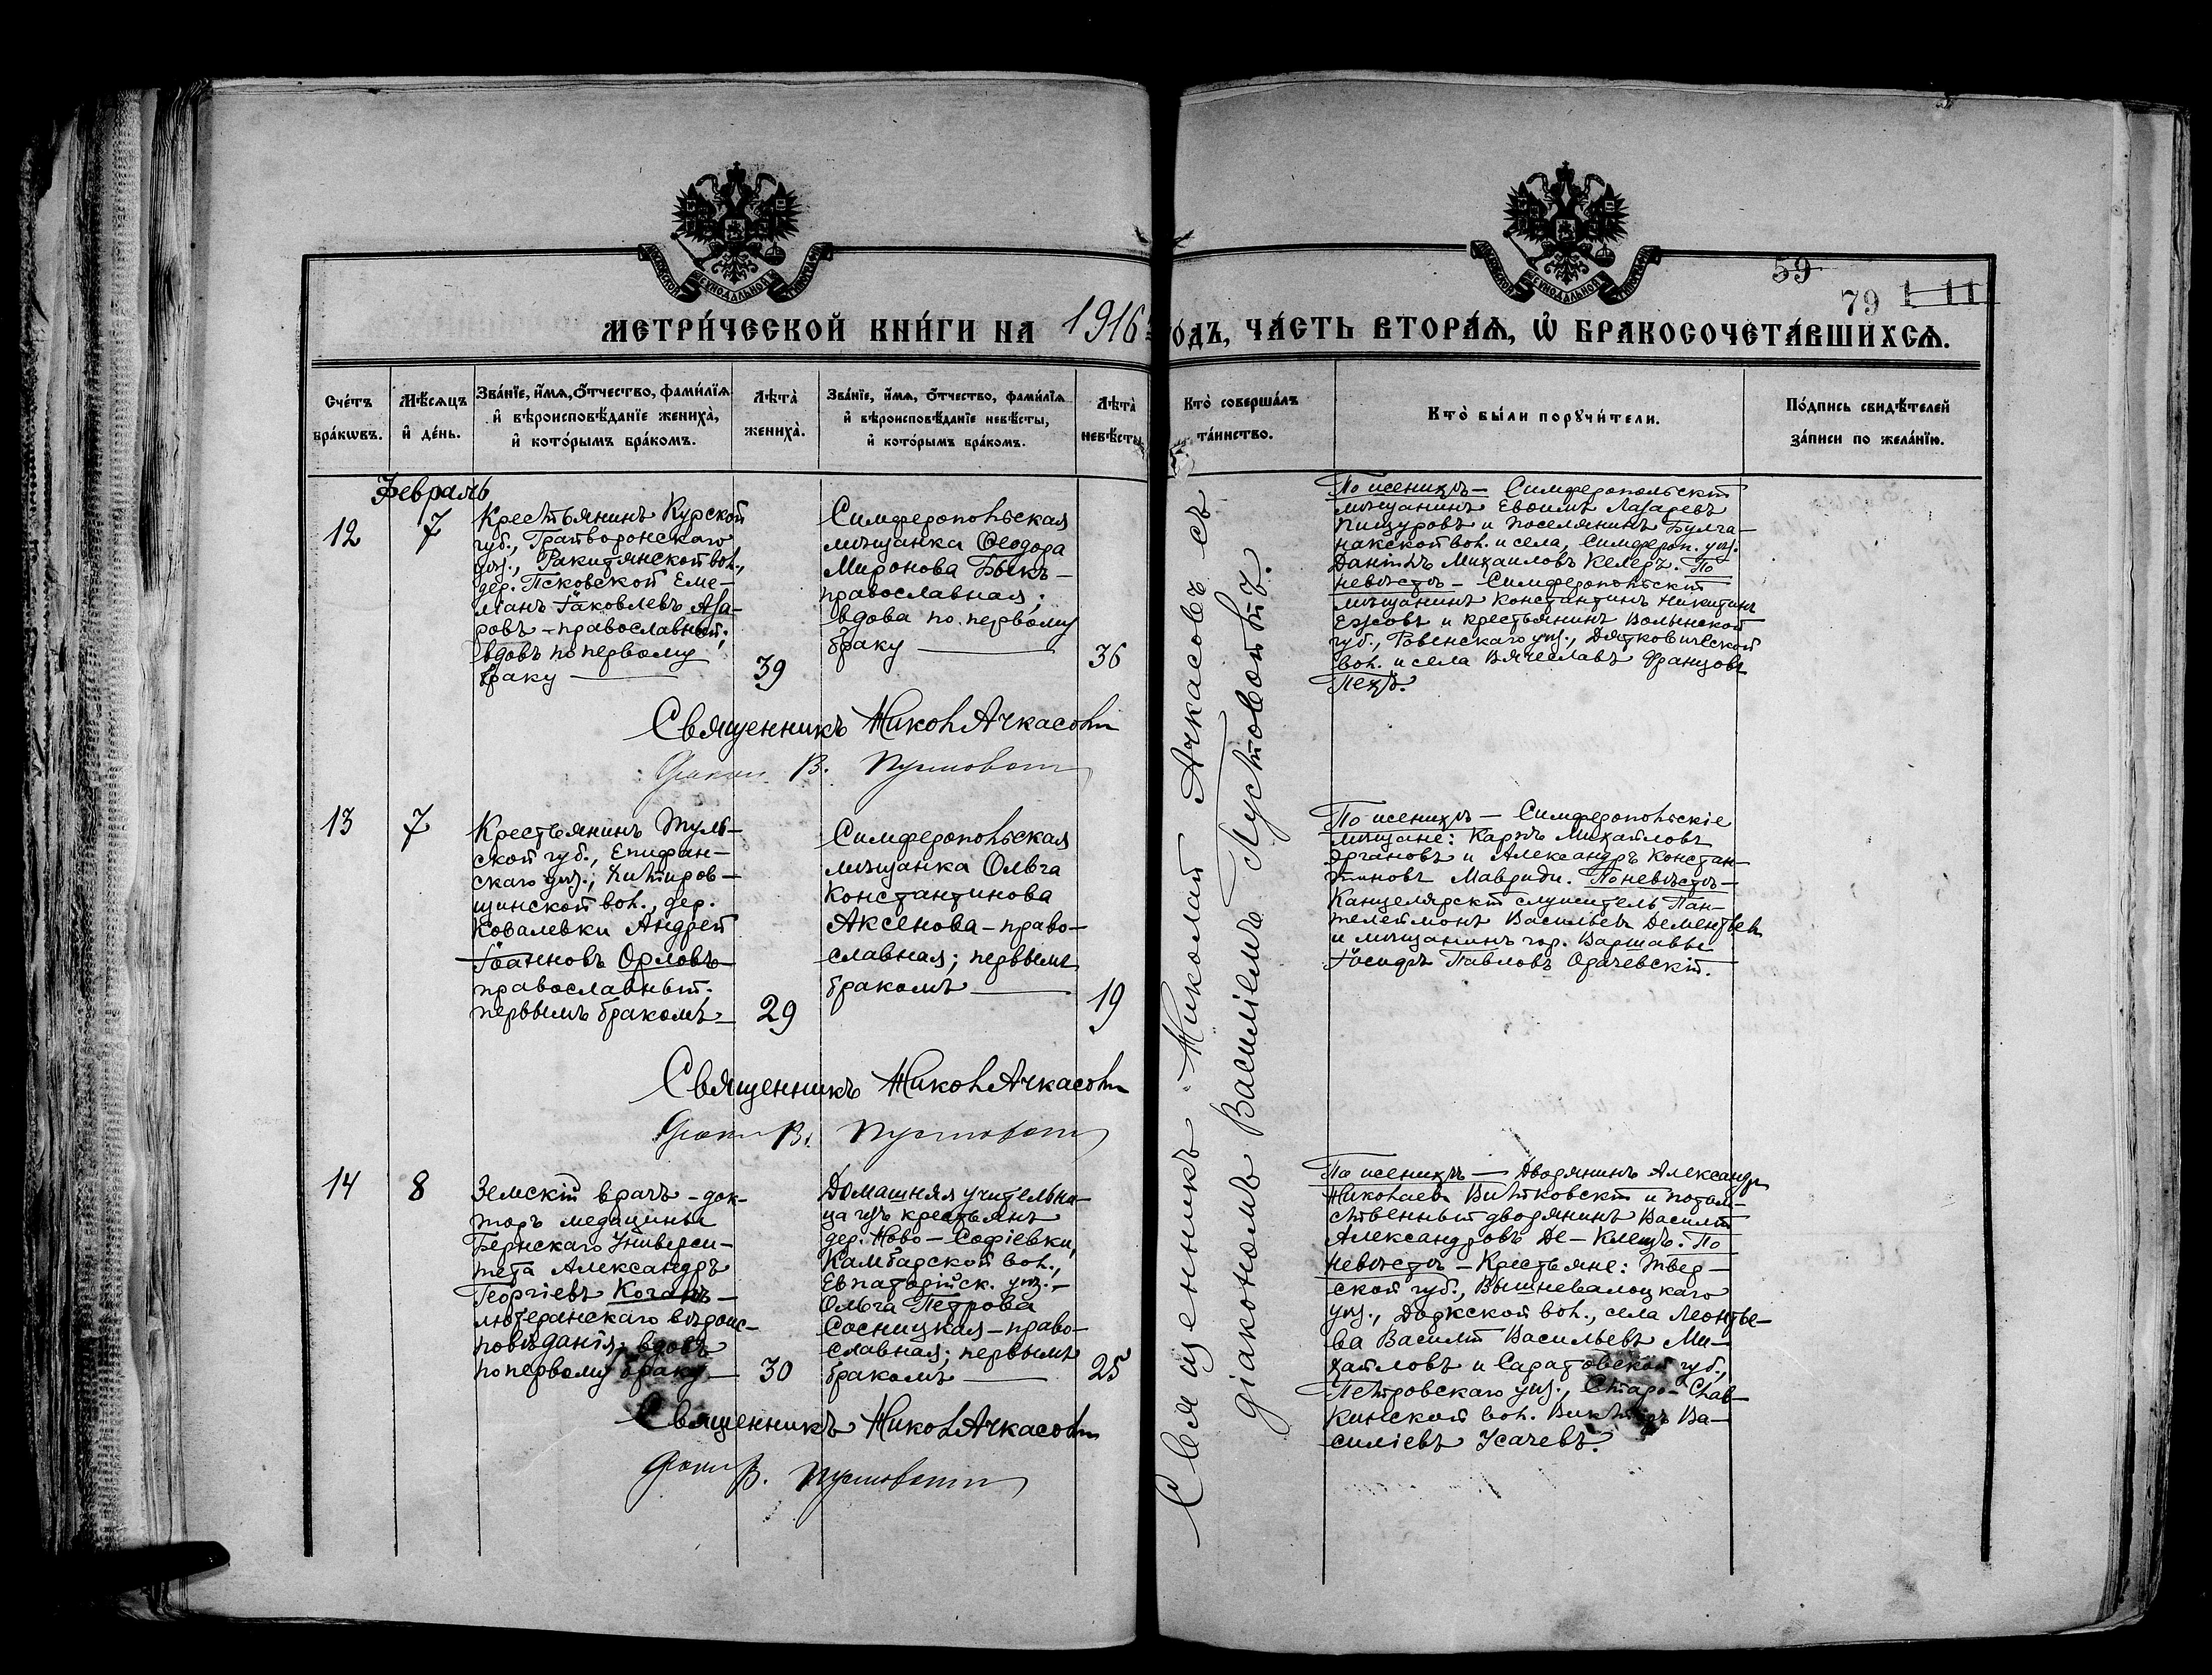 МОСКОВСКОЙ СѴНОДАЛЬНОЙ ТИПОГРАФІИ
МОСКОВСКОЙ СѴНОДАЛЬНОЙ ТИПОГРАФІИ
59
79
1 11
МЕТРИ́ЧЕСКОЙ КНИ́ГИ НА 1916
О́ДЪ, ЧА́СТЬ ВТОРА́Ѧ, Ѡ҆ БРАКОСОЧЕТА́ВШИХСѦ.
Сче́тъ
бра́кѡвъ.
Мѣ́сѧцъ
и҆ де́нь.
Зва́нїе, и҆́мѧ, ѻ҆́тчество, фами́лїѧ
и҆ вѣроисповѣ́данїе жениха̀,
и҆ кото́рымъ бра́комъ.
Лѣта̀
жениха̀.
Зва́нїе, и҆́мѧ, ѻ҆́тчество, фами́лїѧ
и҆ вѣроисповѣ́данїе невѣ́сты,
и҆ кото́рымъ бра́комъ.
Лѣта̀
невѣ́сты
Кто̀ соверша́лъ
та́инство.
Кто̀ бы́ли порꙋчи́тели.
По́дпись свидѣ́телей
за́писи по жела́нїю.
Февраль
12
7
Крестьянинъ Курской
губ., Грайворонскаго
уѣз., Ракитянской вол.,
дер. Псковской Еме-
ліанъ Іаковлевъ Аза-
ровъ - православный;
вдовъ по первому
браку
39
Симферопольская
мѣщанка Ѳеодора
Миронова Быкъ -
православная;
вдова по первому
браку
36
По женихѣ - Симферопольскій
мѣщанинъ Евѳимъ Лазаревъ
Пищуровъ и поселянинъ Булга-
накской вол. и села, Симфероп. уѣз.
Даніилъ Михаиловъ Келеръ. По
невѣстѣ - Симферопольскій
мѣщанинъ Константинъ Никитинъ
Ежовъ и крестьянинъ Волынской
губ., Ровенскаго уѣз., Дятковичской
вол. и села Вячеславъ Францовъ
Священникъ Никол Ачкасовъ
Діакон В. Пустовойт
13
7
Крестьянинъ Туль-
ской губ., Епифан-
скаго уѣз.,
щинской вол., дер.
Ковалевки Андрей
Іоанновъ Орловъ
православный;
первымъ бракомъ
29
Симферопольская
мѣщанка Ольга
Константинова
Аксенова - право-
славная; первымъ
бракомъ
19
По женихѣ - Симферопольскіе
мѣщане: Карпъ Михайловъ
Эргановъ и Александръ Констан-
тиновъ Мавриди. По невѣстѣ -
Канцелярскій служитель Пан-
телеймонъ Васильевъ Дементьевъ
и мѣщанинъ гор. Варшавы
Іосифъ Павловъ Орачевскій.
Священникъ Никол Ачкасовъ
Діакон В. Пустовойт
14
8
Земскій врачъ - док-
торъ медицины
Бернскаго Универси-
тета Александръ
Георгіевъ Коганъ -
лютеранскаго вѣроис-
повѣданія; вдовъ
по первому браку
30
Домашняя учительни-
ца изъ крестьянъ
дер. Ново - Софіевки,
Камбарской вол.,
Евпаторійск. уѣз. -
Ольга Петрова
Сосницкая - право-
славная; первымъ
бракомъ
25
По женихѣ - Дворянинъ Александръ
Николаевъ Витковскій и потом-
ственный дворянинъ Василій
Александровъ Де - Клещъ. По
невѣстѣ - Крестьяне: Твер-
ской губ., Вышневолоцкаго
уѣз., Доркской вол., села Леонтье-
ва Василій Васильевъ Ми-
хайловъ и Саратовской губ.,
Петровскаго уѣз., Старо - Слав-
кинской вол. Викторъ Ва-
силіевъ Усачевъ.
Священникъ Никол Ачкасовъ
Діакон В. Пустовойт
Священникъ Николай Ачкасовъ съ
діакономъ Василіемъ Пустовойтъ.